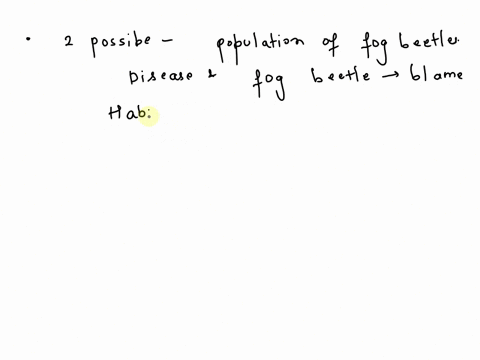 • 2 possibe - population of fog beetle.
Disease & fog beetle → blame
Hab: